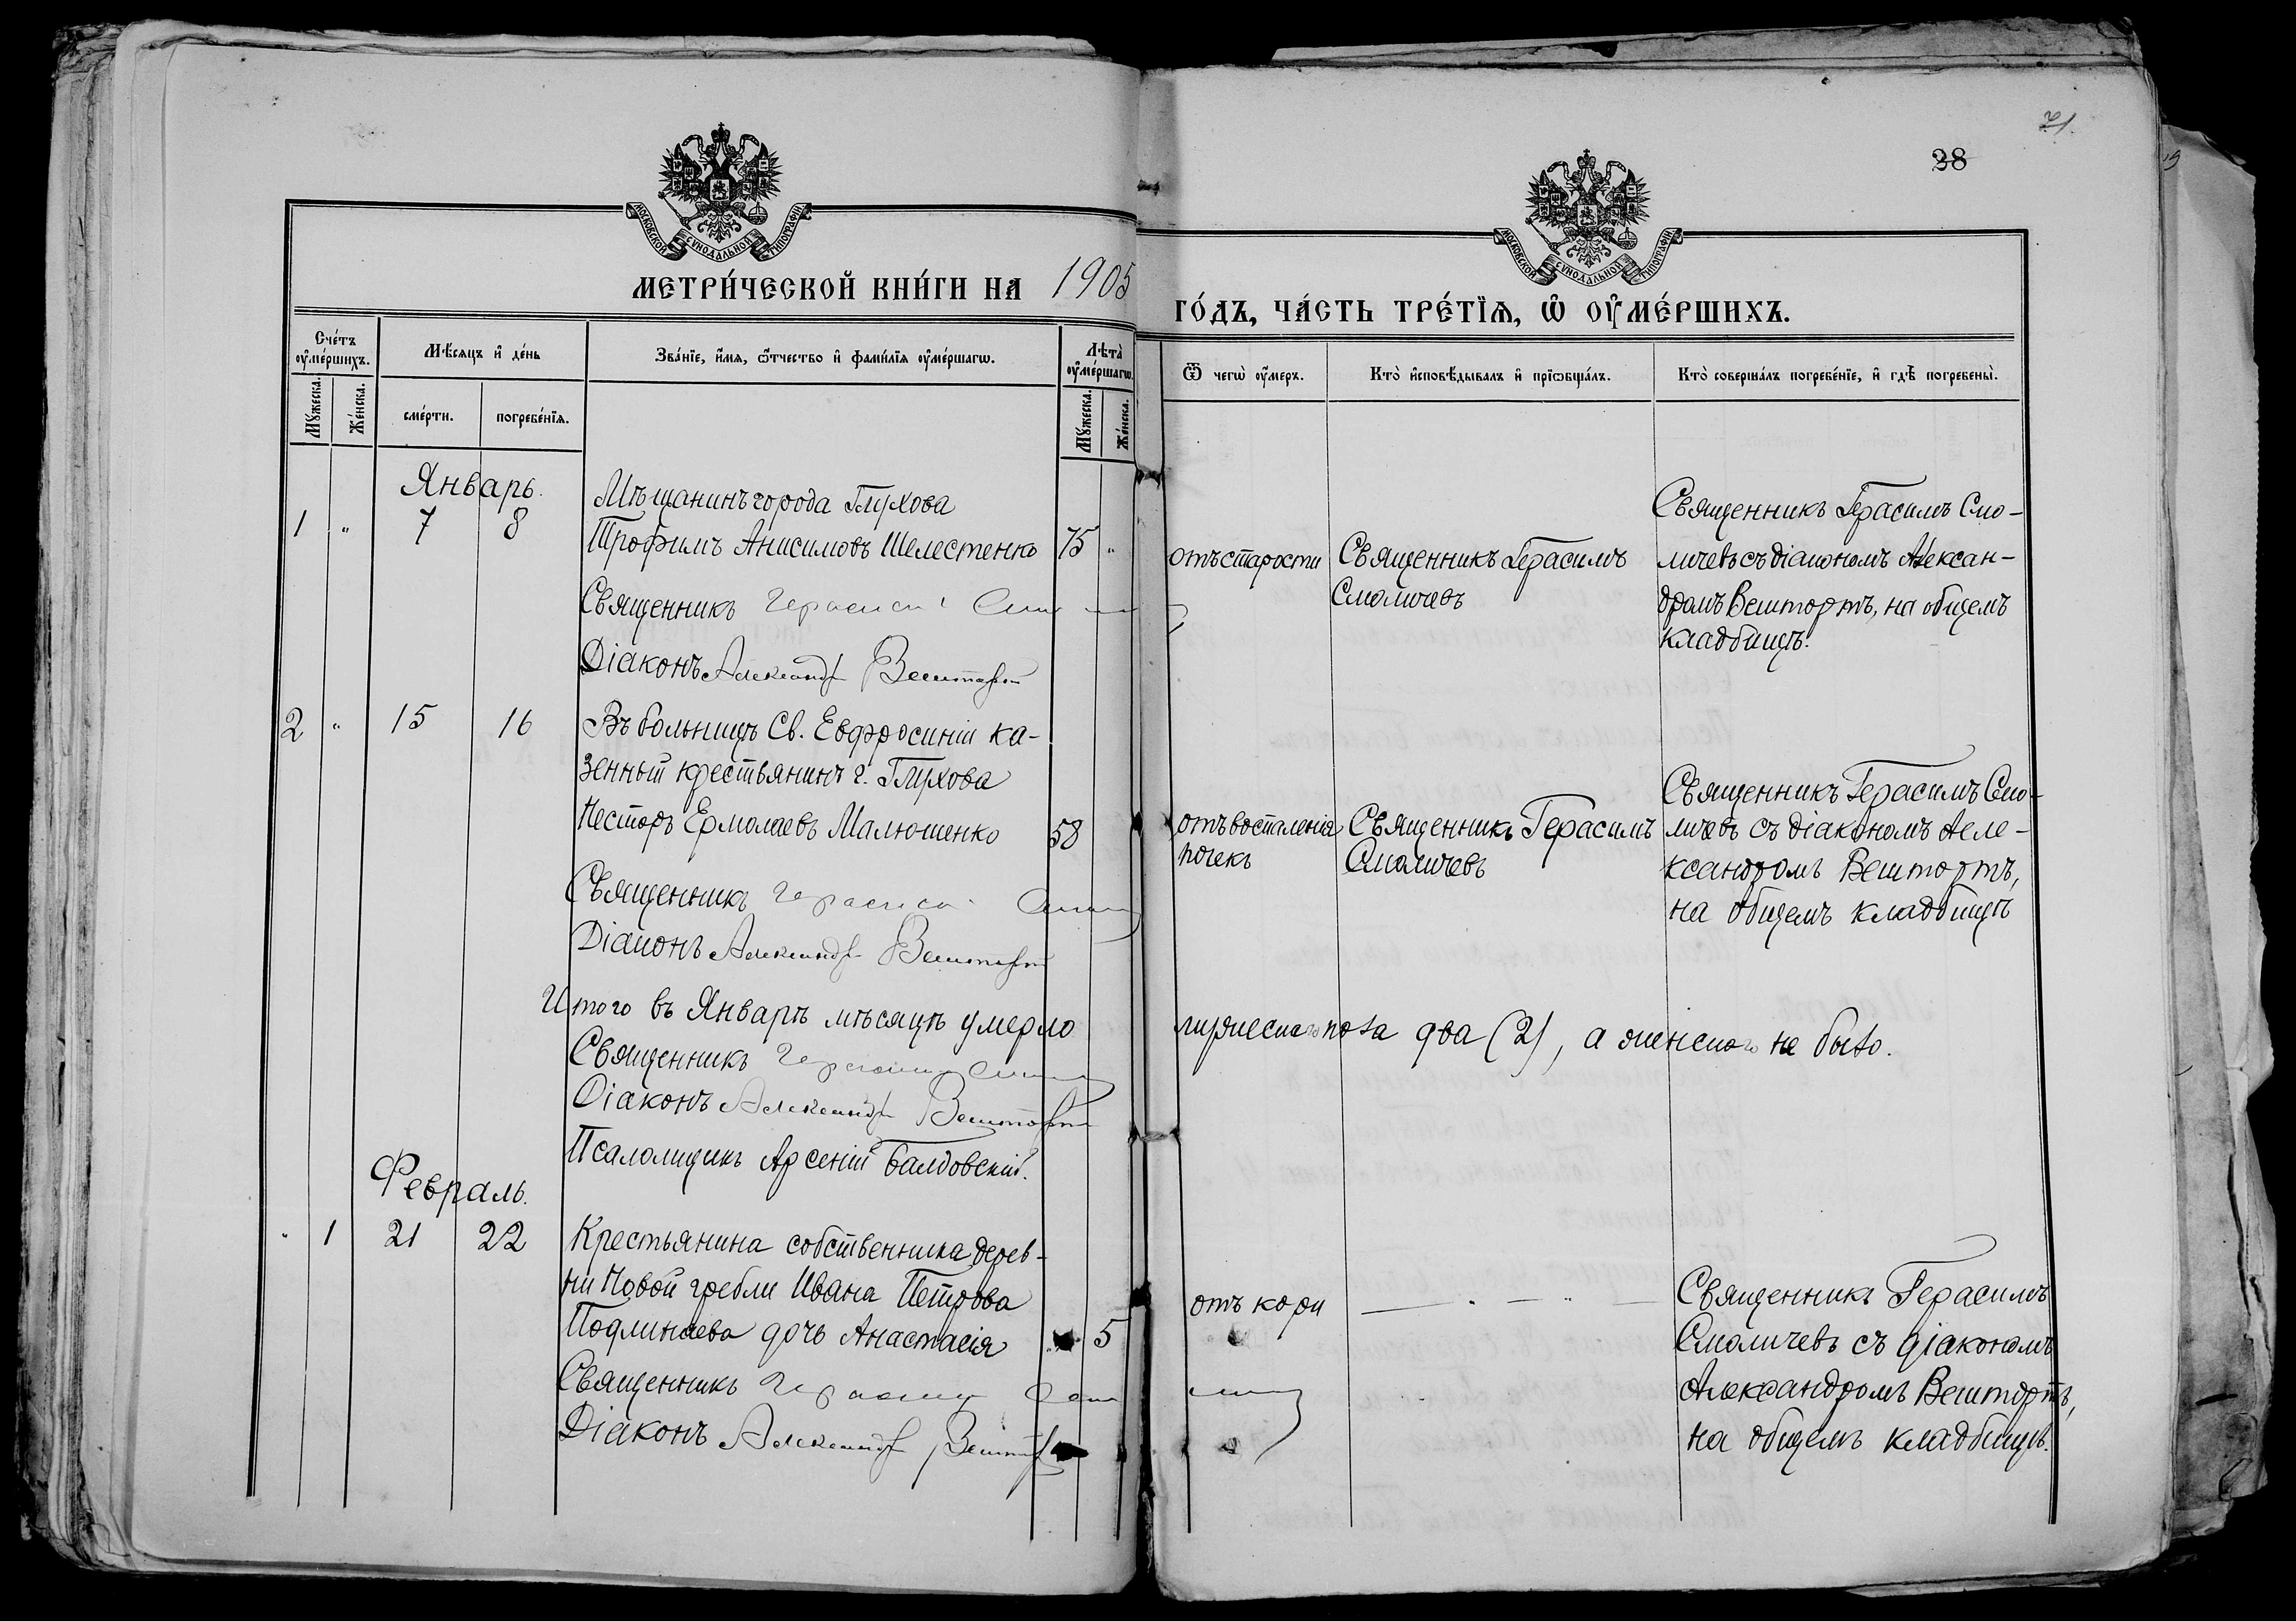 71.
28
МОСКОВСКОЙ СѴНОДАЛЬНОЙ ТИПОГРАФІИ
МОСКОВСКОЙ СѴНОДАЛЬНОЙ ТИПОГРАФІИ
МЕТРИ́ЧЕСКОЙ КНИ́ГИ НА 1905
ГО́ДЪ, ЧА́СТЬ ТРЕ́ТЇѦ, Ѡ҆ ОУ҆МЕ́РШИХЪ.
Сче́тъ оу҆ме́ршихъ.
Мꙋ́жеска.
Же́нска.
Мѣ́сѧцъ и҆ де́нь
сме́рти.
погребе́нїѧ.
Зва́нїе, и҆́мѧ, ѻ҆́тчество и҆ фами́лїѧ оу҆ме́ршагѡ.
Лѣ̀та оу҆ме́ршагѡ.
Мꙋ́жеска.
Же́нска.
Ѿ чегѡ̀ оу҆́меръ.
Кто̀ и҆сповѣ́дывалъ и҆ прїѡбща́лъ.
Кто̀ соверша́лъ погребе́нїе, и҆ гдѣ̀ погребены̀.
Январь.
1 " 7 8
Мѣщанинъ города Глухова
Трофимъ Анисимовъ Шелестенко 75 "
Священникъ Герасимъ
Діаконъ Александръ Вештортъ
отъ старости
Священникъ Герасимъ
Смоличевъ
Священникъ Герасимъ Смо-
личевъ съ діакономъ Алексан-
дромъ Вештортъ, на общемъ
кладбищѣ.
2 " 15 16
Въ больницѣ Св. Евфросиніи ка-
зенный крестьянинъ г. Глухова
Несторъ Ермолаевъ Малюшенко 58
Священникъ Герасимъ
Діаконъ Александръ Вештортъ
отъ воспаленія
почекъ
Священникъ Герасимъ
Смоличевъ
Священникъ Герасимъ Смо-
личевъ съ діакономъ Але-
ксандромъ Вештортъ,
на общемъ кладбищѣ
Итого въ Январѣ мѣсяцѣ умерло мужескаго пола два (2), а женскаго не было.
Священникъ Герасимъ
Діаконъ Александръ Вештортъ
Псаломщикъ Арсеній Балдовскій.
Февраль.
" 1 21 22
Крестьянина собственника дерев-
ни Новой гребли Ивана Петрова
дочь Анастасія " 5
Священникъ Герасимъ
Діаконъ Александръ Вештортъ
отъ кори
Священникъ Герасимъ
Смоличевъ съ діакономъ
Александромъ Вештортъ,
на общемъ кладбищѣ.